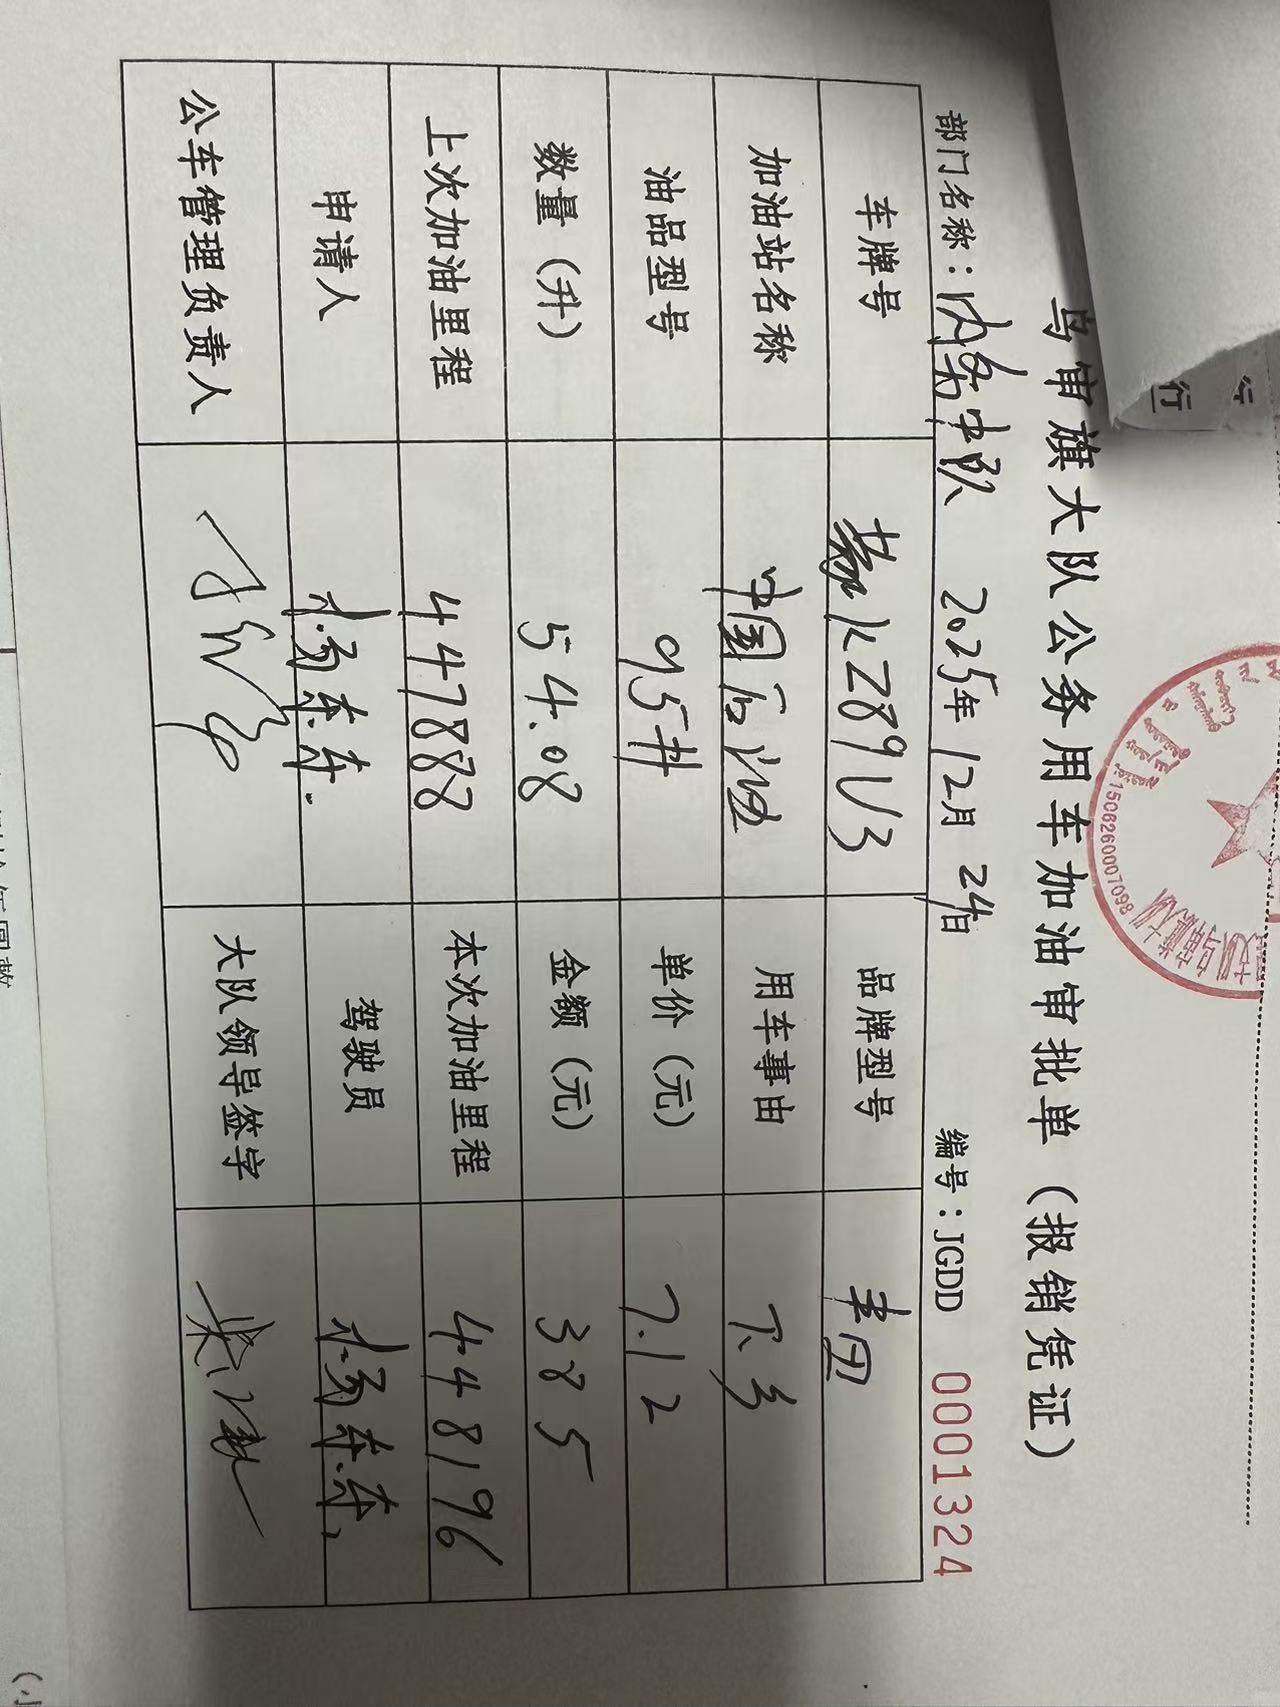 乌审旗大队公务用车加油审批单（报销凭证）
部门名称：内务中队 2025年12月24日 编号：JGDD 0001324
车牌号 蒙KZ89U3 品牌型号 丰田
加油站名称 中国石油 用车事由 下乡
油品型号 95# 单价（元） 7.12
数量（升） 54.08 金额（元） 385
上次加油里程 447888 本次加油里程 448196
申请人 杨东东 驾驶员 杨东东
公车管理负责人 大队领导签字
1506260007098
行